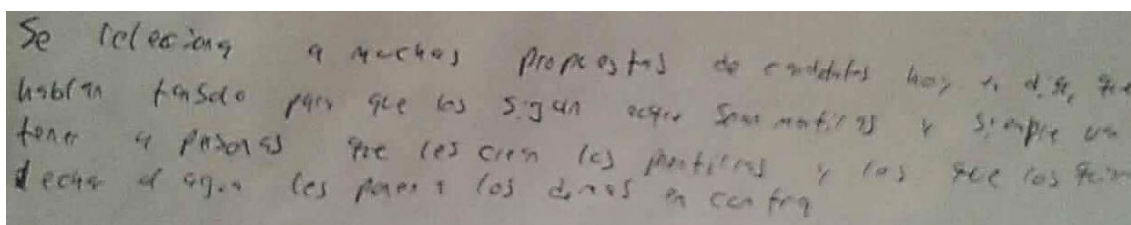 Se relaciona a muchas propuestas de candidatos hoy en día, que
hablan para que los sigan aque sean mentiras y siempre van
tener a personas que les crean las mentiras y los que los
echar al agua les ponen a los demas en contra